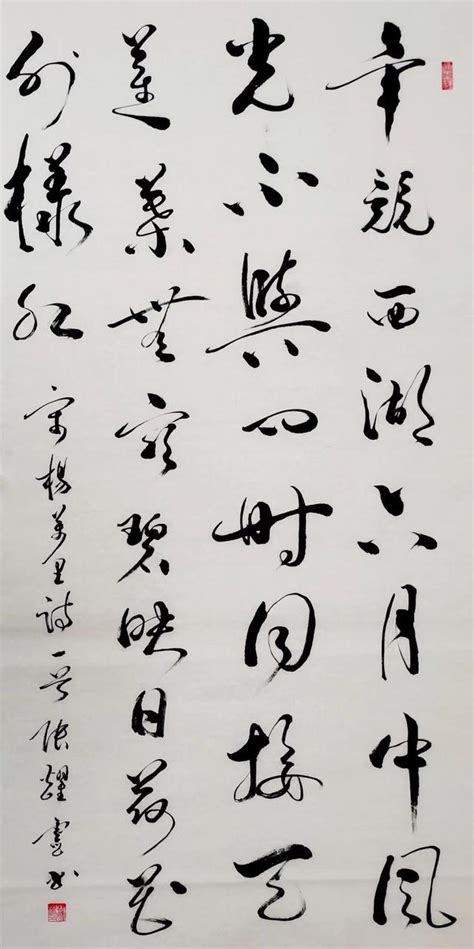 畢竟西湖六月中風
光不與四時同接天
蓮葉無窮碧映日荷花
別樣紅
宋楊萬里詩一首 張耀書